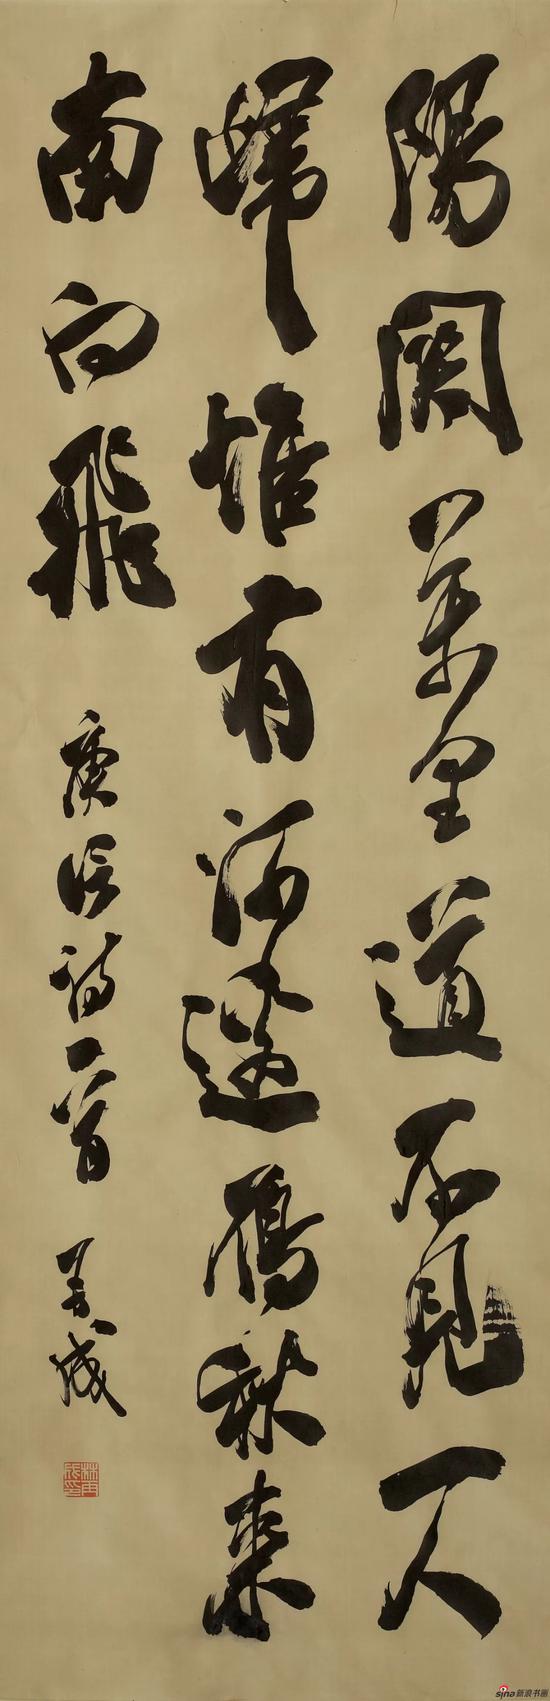 陽関萬里道不見一人
歸惟有河邊鴈秋來
南向飛
庾信詩一首
sina新浪书画